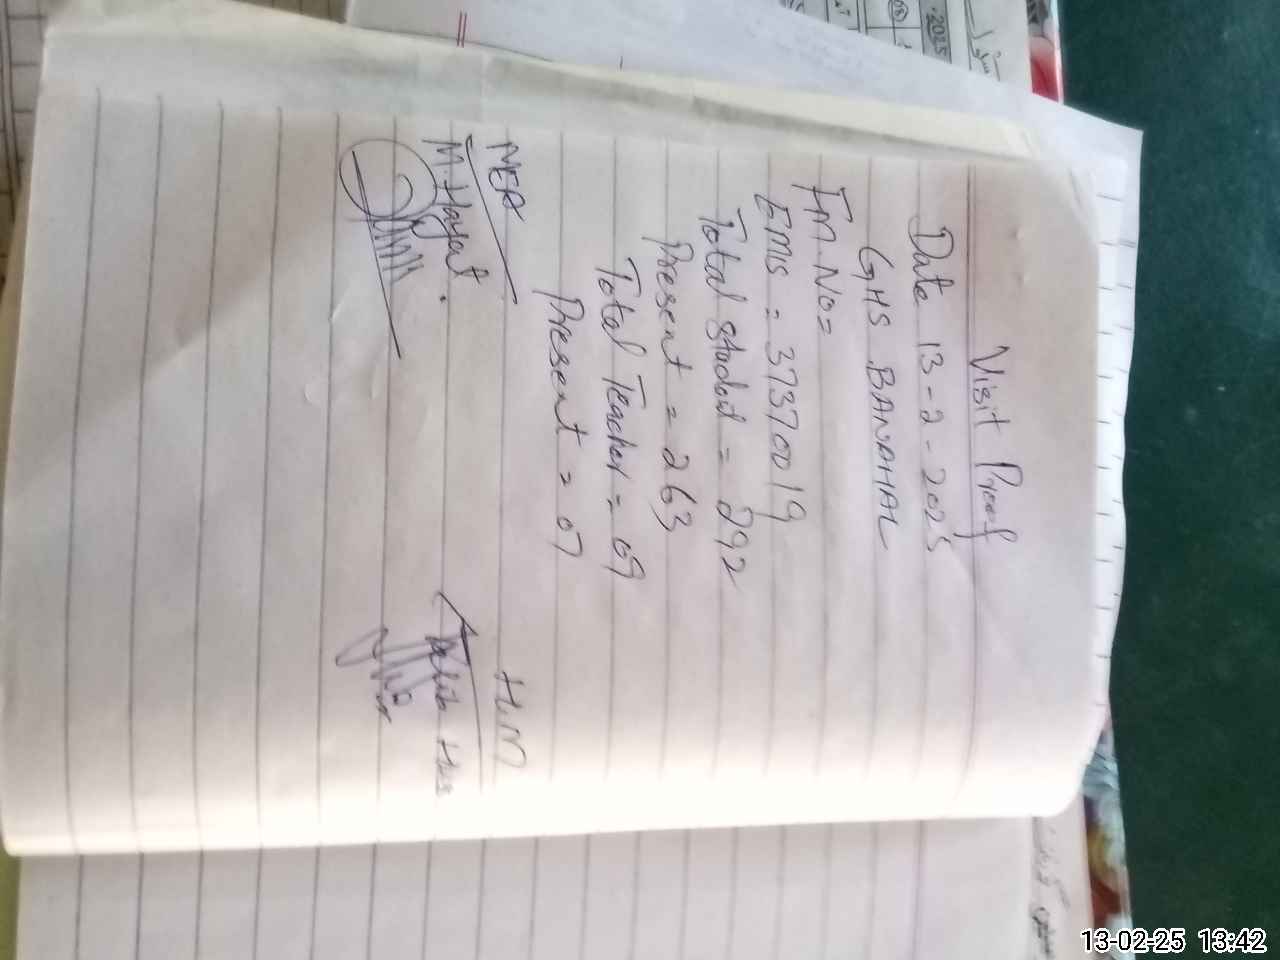 Visit Proof
Date 13-2-2025
GHS BANAHAL
Fm.No=
EMIS = 37370019
Total Student = 292
Present = 263
Total Teacher = 09
Present = 07
MEA
H.M
M. Hayat.
2025
13-02-25 13:42